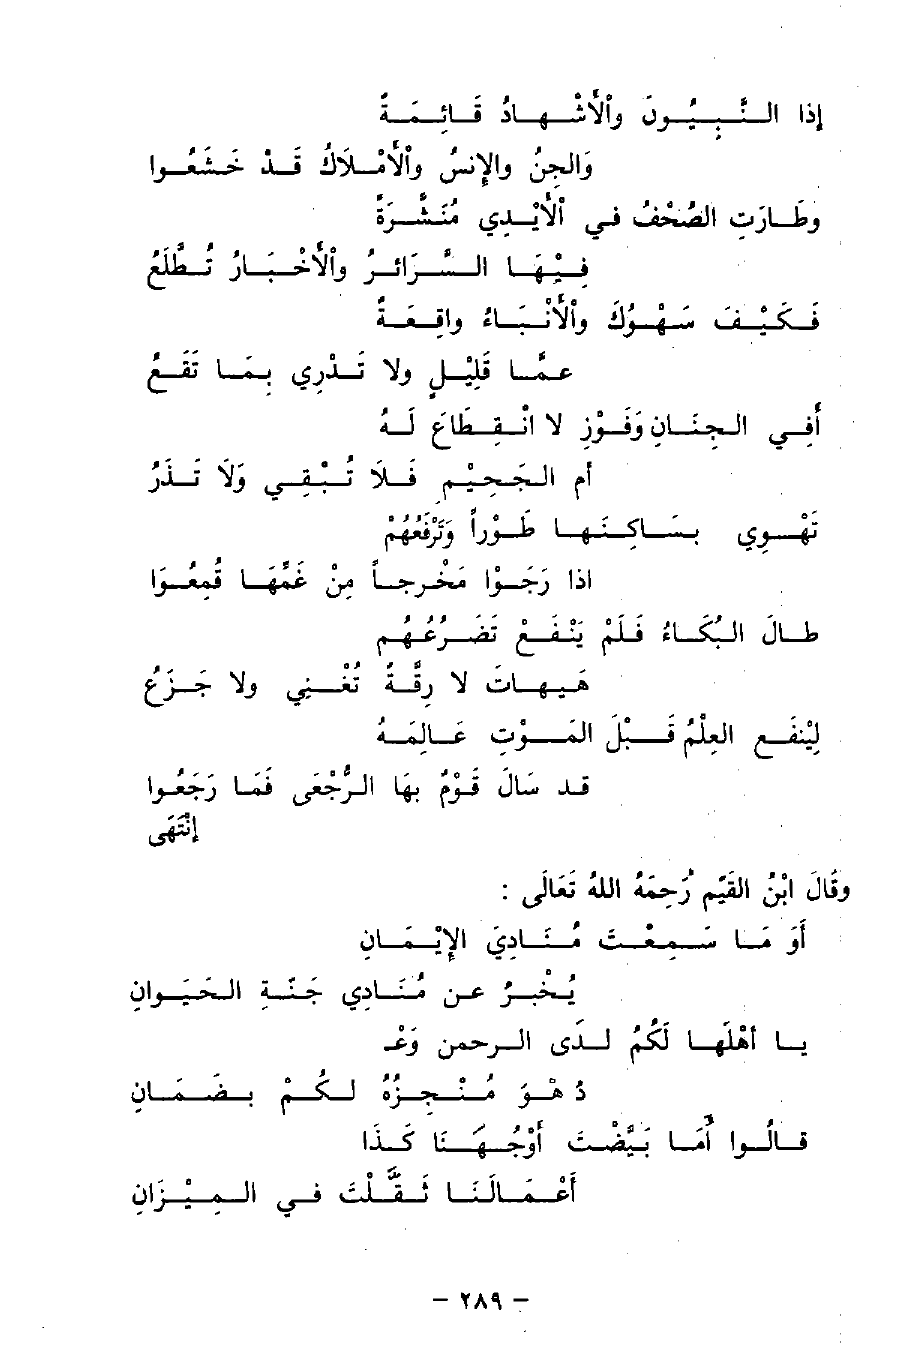 إذا النَّبِيُّونَ والأَشْهادُ قَائِمَةٌ
وَالجِنُ والإِنسُ والأَمْلَاكُ قَدْ خَشَعُوا
وطَارَتِ الصُحْفُ في الأَيْدِي مُنَشَّرَةً
فِيْهَا السَّرَائرُ والأَخْبَارُ تُطَّلَعُ
فَكَيْفَ سَهْوُكَ والأَنْبَاءُ واقِعَةٌ
عمَّا قَلِيْلٍ ولا تَدْرِي بِمَا تَقَعُ
أَفِي الجِنَانِ وَفَوْزٍ لا انْقِطَاعَ لَهُ
أم الجَحِيْمِ فَلَا تُبْقِي وَلَا تَذَرُ
تَهْوِي بسَاكِنِهَا طَوْراً وَتَرْفَعُهُمْ
اذا رَجَوْا مَخْرجاً مِنْ غَمِّهَا قُمِعُوَا
طالَ البُكَاءُ فَلَمْ يَنْفَعْ تَضَرُعُهُم
هَيهاتَ لا رِقَّةٌ تُغْنِي ولا جَزَعُ
لِيَنْفَعِ العِلْمُ قَبْلَ المَوْتِ عَالِمَهُ
قد سَالَ قَوْمٌ بهَا الرُّجْعَى فَمَا رَجَعُوا
إنْتَهَى
وقَالَ ابْنُ القَيِّم رَحِمَهُ اللهُ تَعَالَى :
أَوَ مَا سَمِعْتَ مُنَادِيَ الإِيْمَانِ
يُخْبرُ عن مُنَادِي جَنَّةِ الحَيَوانِ
يا أهْلَهَا لَكُمُ لدَى الرحمن وَعْـ
دٌ هْوَ مُنْجِزُهُ لكُمْ بضَمَانِ
قالُوا أمَا بَيَّضْتَ أَوْجُهَنَا كَذَا
أَعْمَالَنَا ثَقَّلْتَ في المِيْزَانِ
- ٢٨٩ -